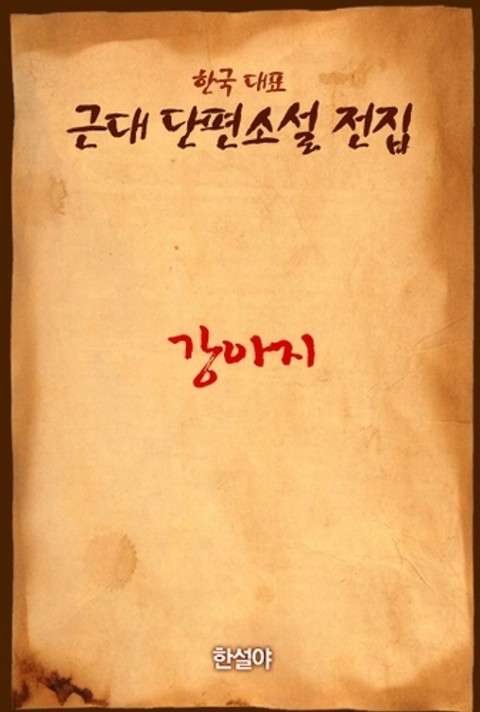 한국 대표
근대 단편소설 전집
강아지
한설야